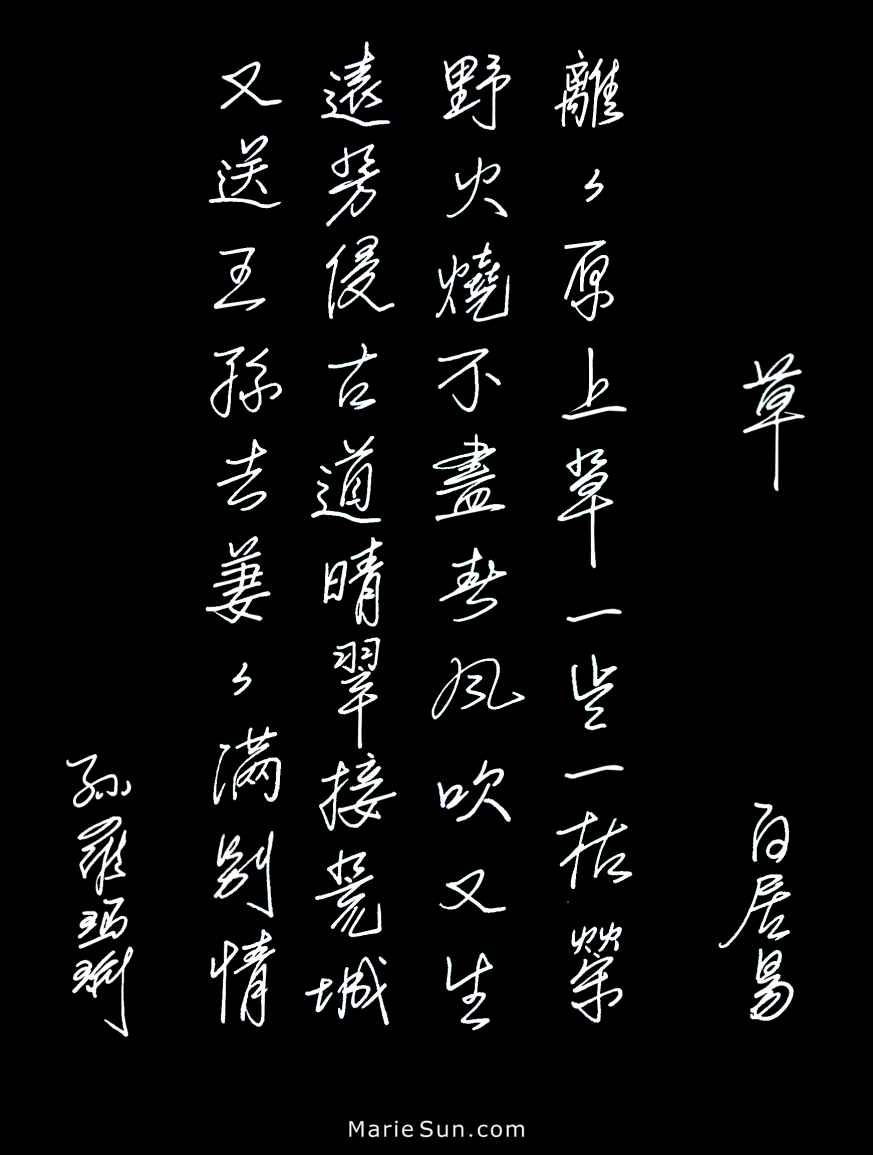 草 白居易
離々原上草一歲一枯榮
野火燒不盡春風吹又生
遠芳侵古道晴翠接荒城
又送王孫去萋々滿別情
孫羅瑪琍
MarieSun.com